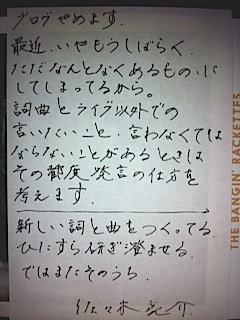 ブログやめます.
最近、いやもうしばらく、
ただなんとなくあるもの、に
してしまってるから。
詞曲とライブ以外での
言いたいこと、言わなくては
ならないことがあるときは
その都度発言の仕方を
考えます.
新しい詞と曲をつくってる.
ひたすら研ぎ澄ませる.
ではまたそのうち.
佐々木亮介
THE BANGIN' RACKETTES